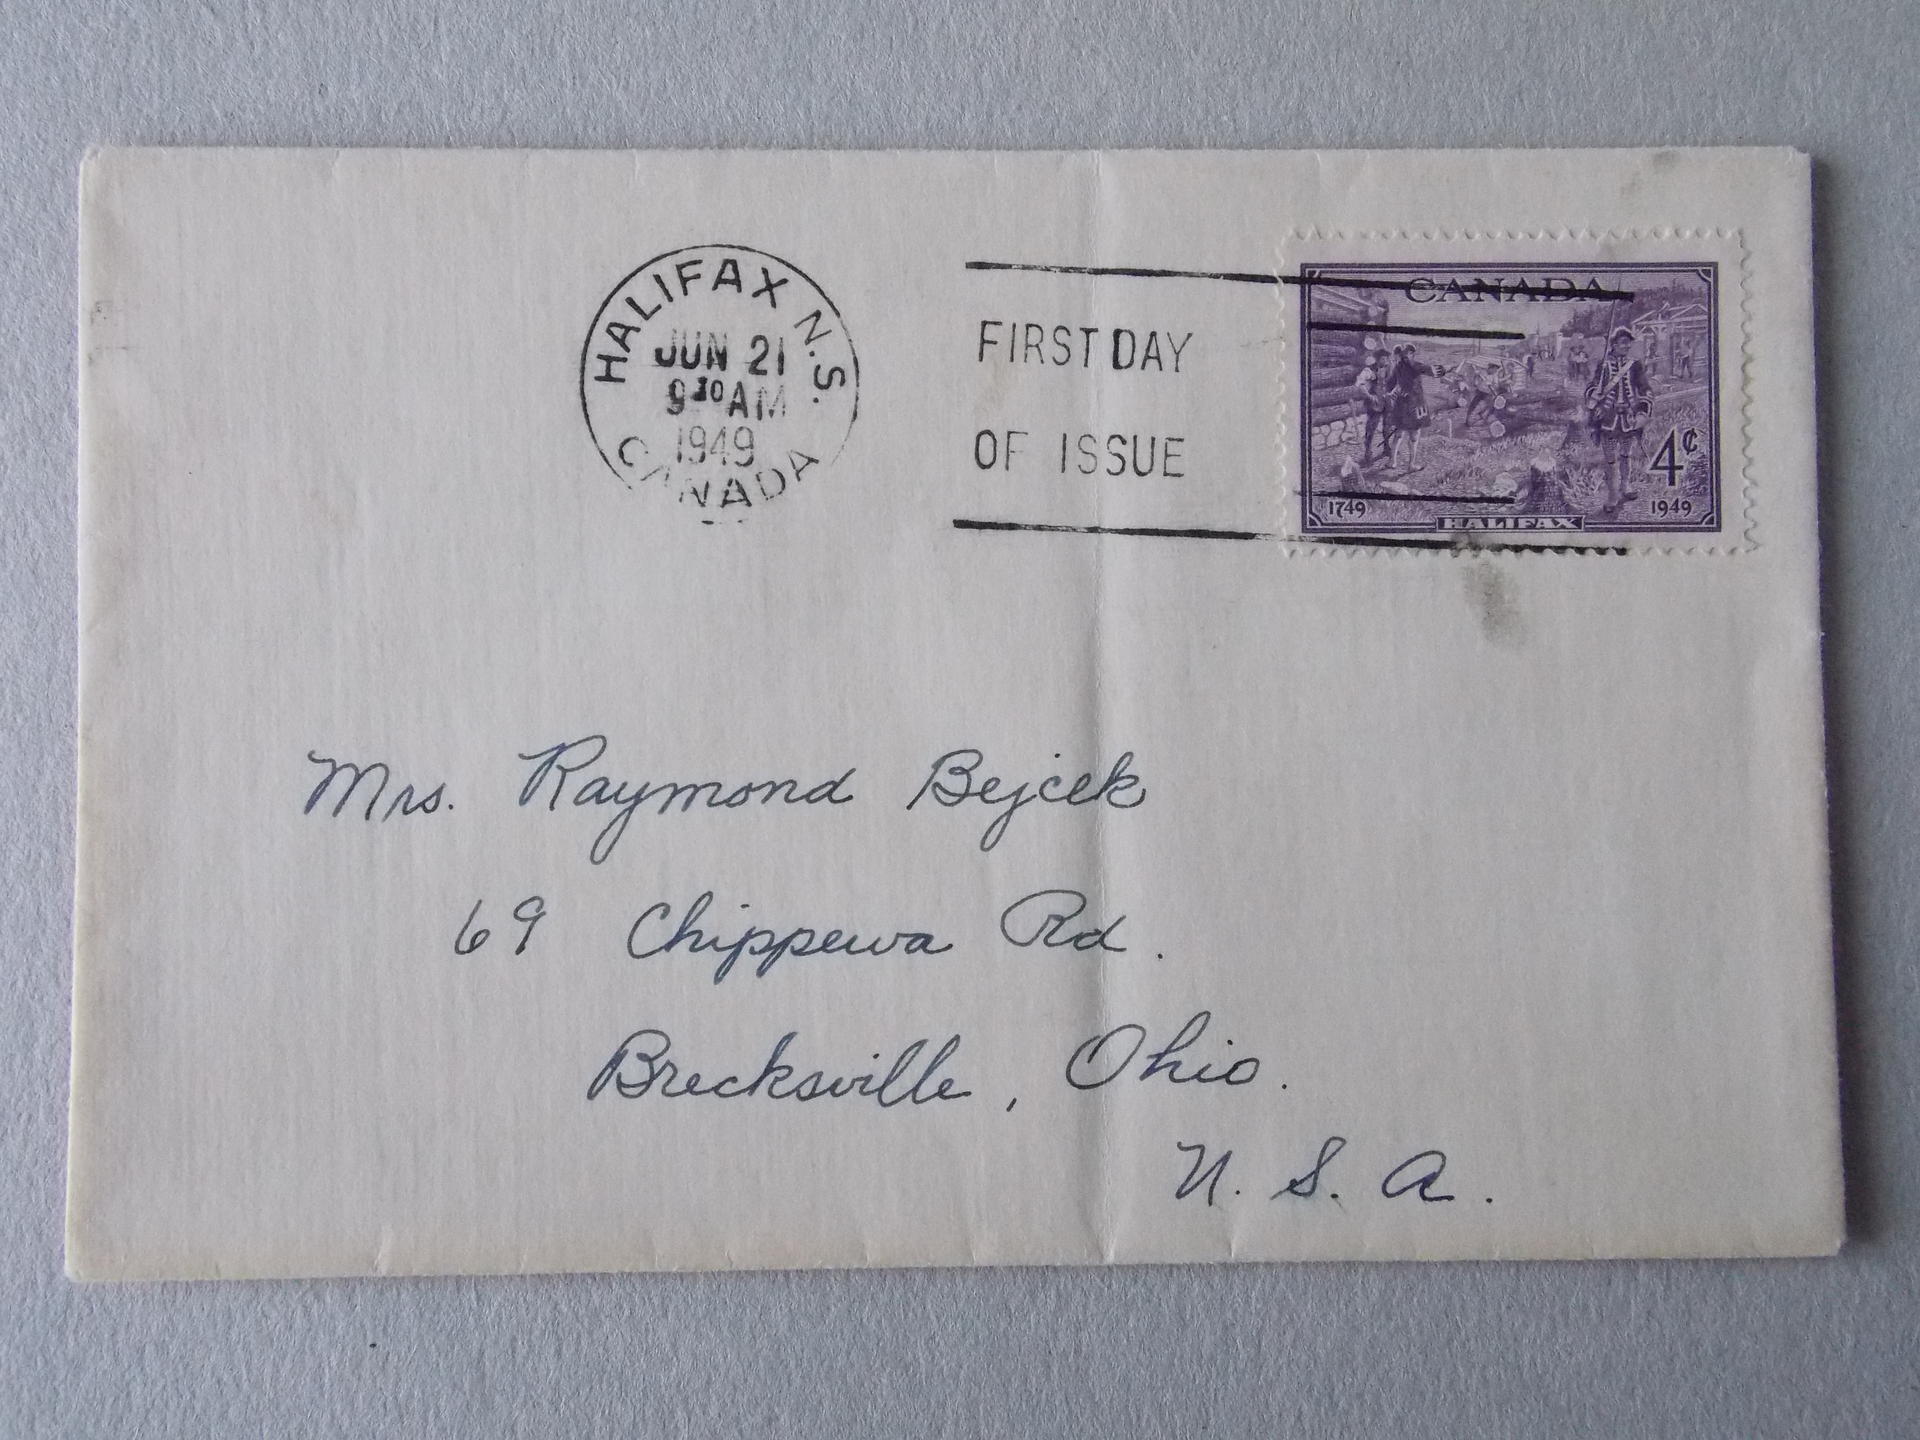 HALIFAX N.S.
JUN 21
9 30 AM
1949
CANADA
FIRST DAY
OF ISSUE
CANADA
4¢
1749
HALIFAX
1949
Mrs. Raymond Bejcek
69 Chippewa Rd.
Brecksville, Ohio.
U. S. A.